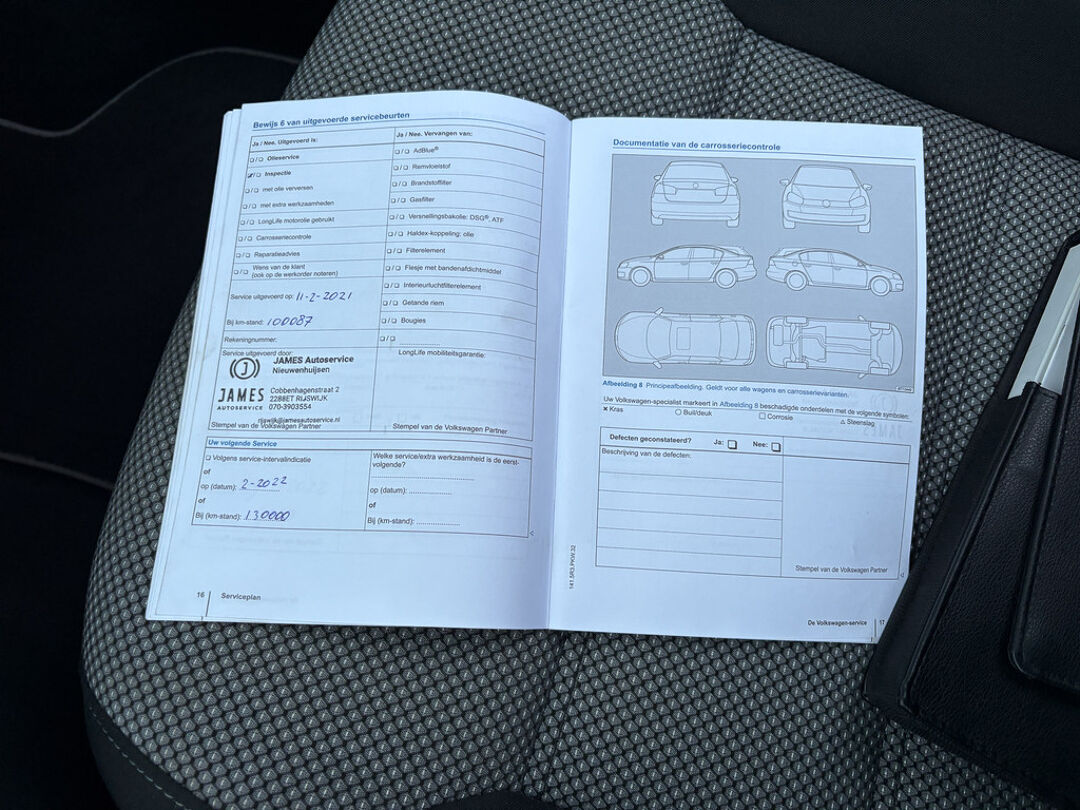 Bewijs 6 van uitgevoerde servicebeurten
Ja / Nee. Uitgevoerd is:
❏/❏ Olieservice
☑/❏ Inspectie
❏/❏ met olie verversen
❏/❏ met extra werkzaamheden
❏/❏ LongLife motorolie gebruikt
❏/❏ Carrosseriecontrole
❏/❏ Reparatieadvies
❏/❏ Wens van de klant
(ook op de werkorder noteren)
Service uitgevoerd op: 11-2-2021
Bij km-stand: 100087
Rekeningnummer:
Service uitgevoerd door:
JAMES Autoservice
Nieuwenhuijsen
JAMES
AUTOSERVICE
Cobbenhagenstraat 2
2288ET RIJSWIJK
070-3903554
rijswijk@jamesautoservice.nl
Stempel van de Volkswagen Partner
Ja / Nee. Vervangen van:
❏/❏ AdBlue®
❏/❏ Remvloeistof
❏/❏ Brandstoffilter
❏/❏ Gasfilter
❏/❏ Versnellingsbakolie: DSG®, ATF
❏/❏ Haldex-koppeling: olie
❏/❏ Filterelement
❏/❏ Flesje met bandenafdichtmiddel
❏/❏ Interieurluchtfilterelement
❏/❏ Getande riem
❏/❏ Bougies
❏/❏ ....................
LongLife mobiliteitsgarantie:
Stempel van de Volkswagen Partner
Uw volgende Service
❏ Volgens service-intervalindicatie
of
op (datum): 2-2022
of
Bij (km-stand): 130000
Welke service/extra werkzaamheid is de eerst-
volgende?
op (datum): ....................
of
Bij (km-stand): ....................
16 Serviceplan
Documentatie van de carrosseriecontrole
Afbeelding 8 Principeafbeelding. Geldt voor alle wagens en carrosserievarianten.
Uw Volkswagen-specialist markeert in Afbeelding 8 beschadigde onderdelen met de volgende symbolen:
× Kras ○ Buil/deuk □ Corrosie △ Steenslag
Defecten geconstateerd? Ja: ❏ Nee: ❏
Beschrijving van de defecten:
Stempel van de Volkswagen Partner
141.5R3.PKW.32
De Volkswagen-service 17